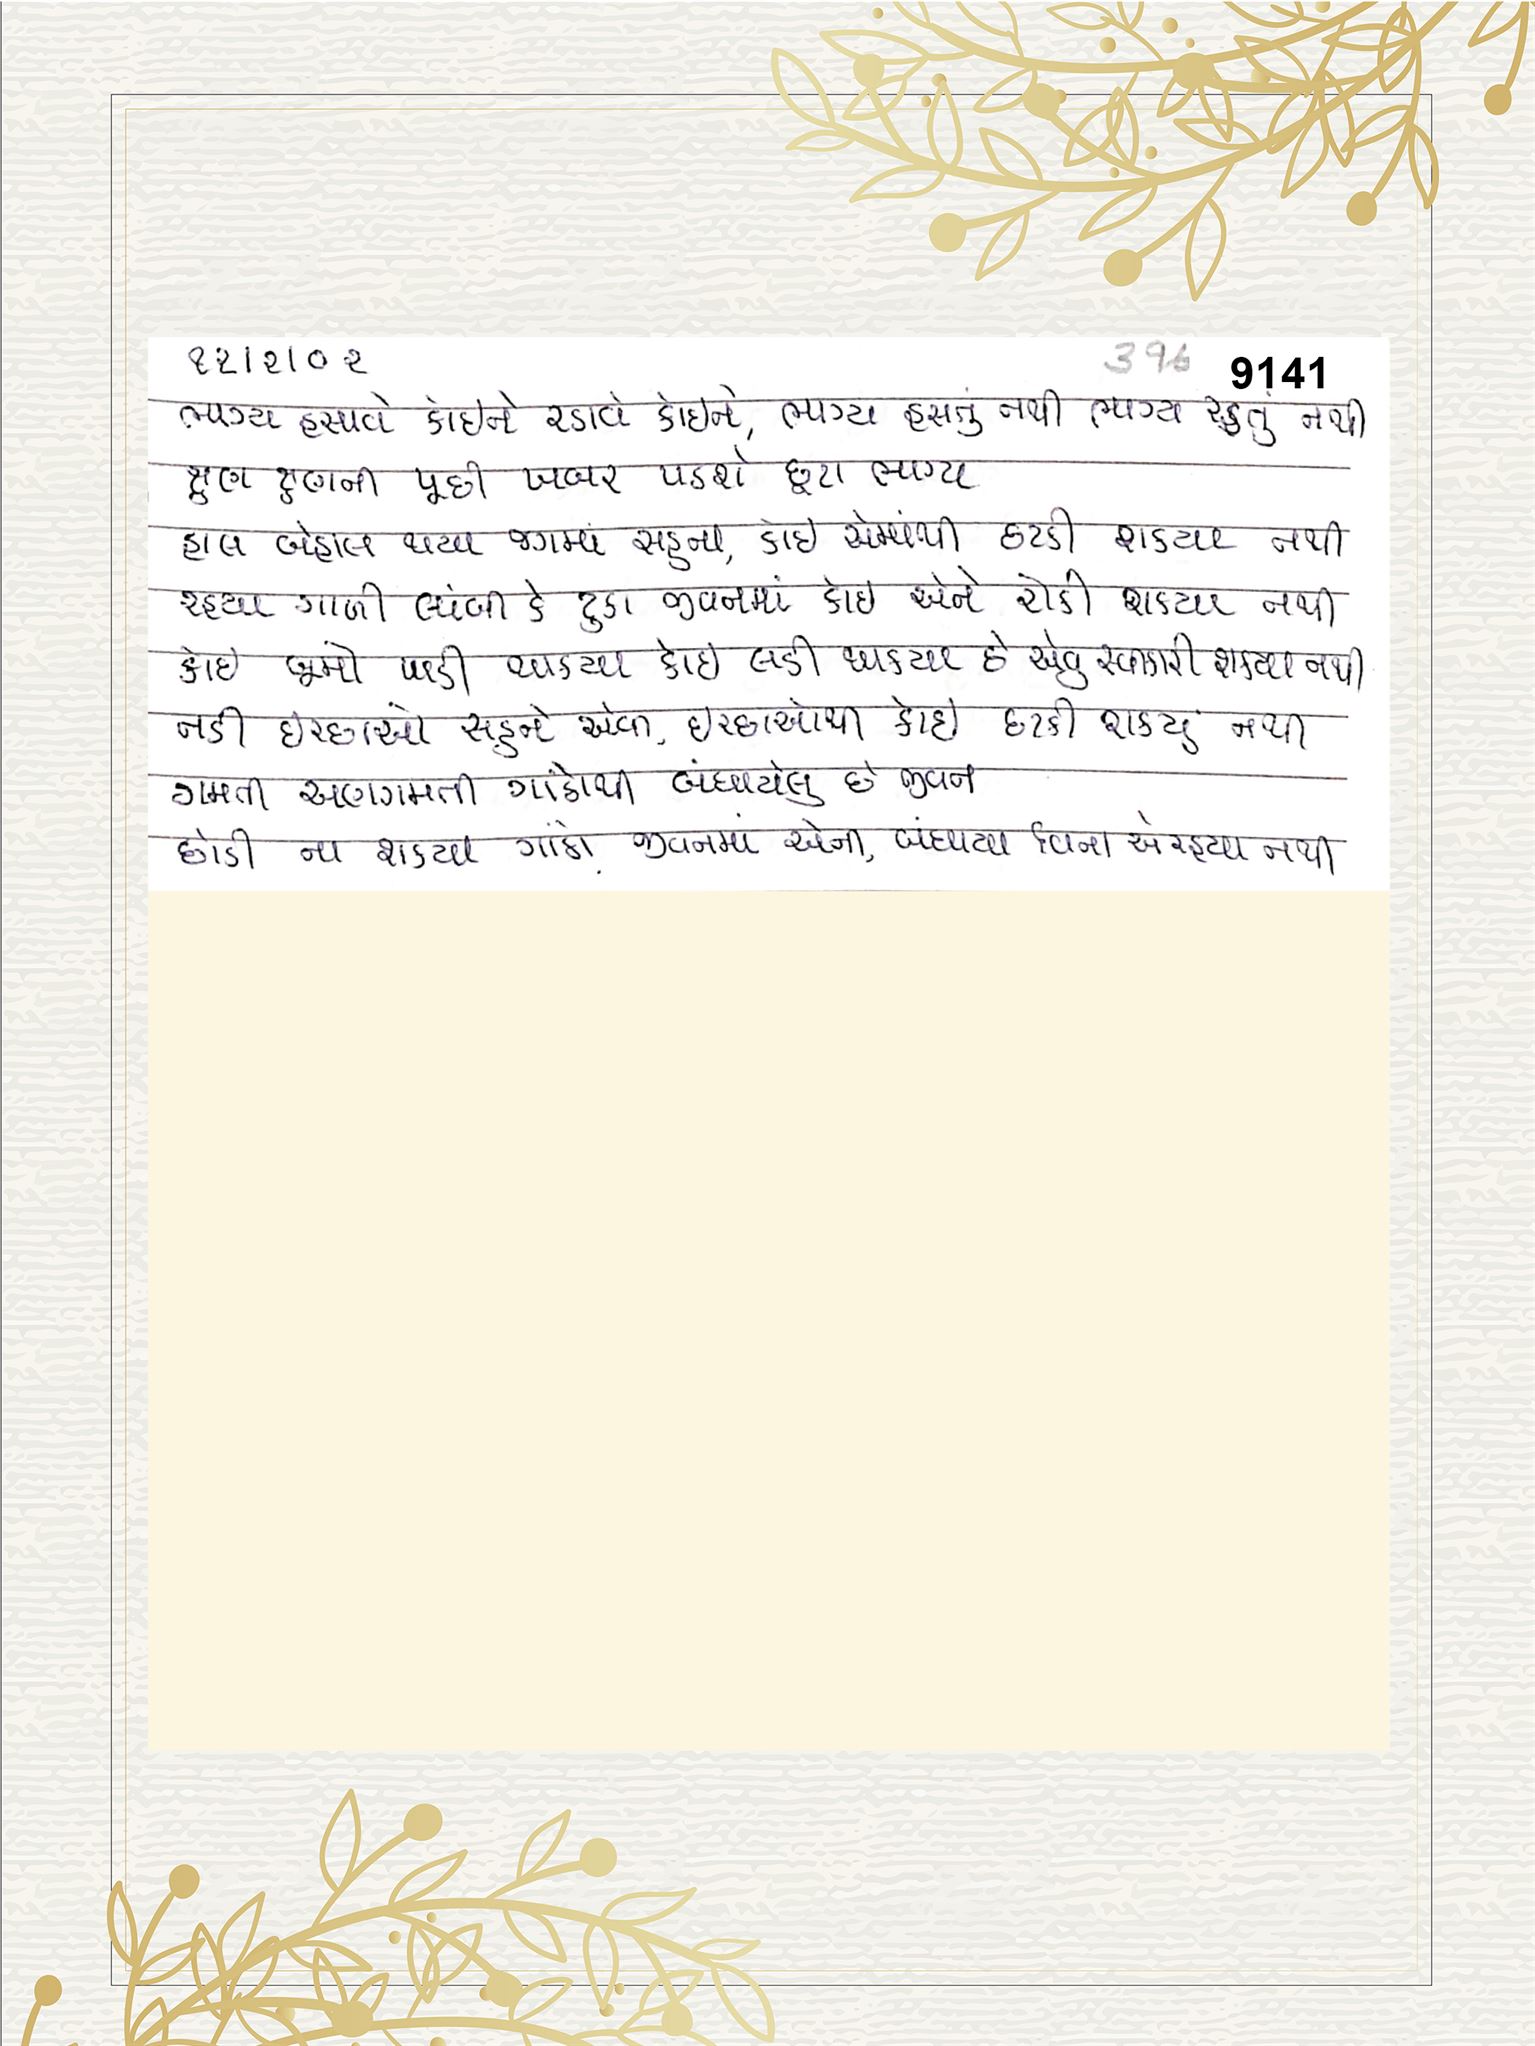 ૧૨।૨।૦૨
9141
ભાગ્ય હસાવે કોઇને રડાવે કોઇને, ભાગ્ય હસતું નથી ભાગ્ય રડતું નથી
ક્ષણ ક્ષણની પૂછી ખબર પડશે છૂટા ભાગ્ય
હાલ બેહાલ થયા જગમાં સહુના, કોઇ એમાંથી છટકી શક્યા નથી
રહ્યા ગાળી લાંબી કે ટુકા જીવનમાં કોઇ એને રોકી શક્યા નથી
કોઇ બૂમો પાડી થાક્યા કોઇ લડી થાક્યા છે એવુ સ્વીકારી શક્યા નથી
નડી ઇચ્છાઓ સહુને એવી, ઇચ્છાઓથી કોઇ છટકી શક્યું નથી
ગમતી અણગમતી ગાંઠોથી બંધાયેલુ છે જીવન
છોડી ના શક્યા ગાંઠો જીવનમાં એની, બંધાયા વિના એ રહ્યા નથી